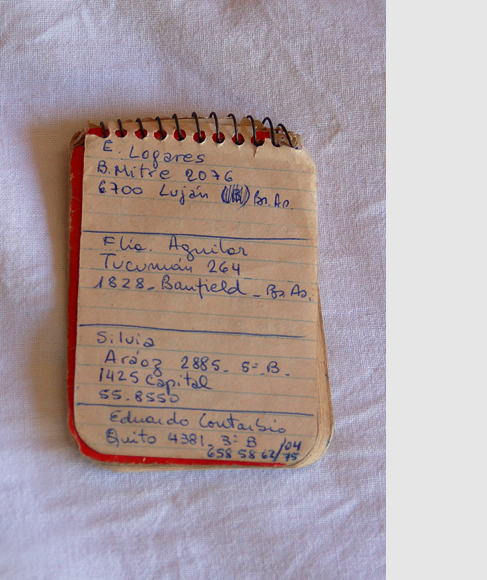 E. Logares
B. Mitre 2076
6700 Luján Bs. As.
Flia. Aguilar
Tucumán 264
1828 - Banfield - Bs As.
Silvia
Aráoz 2885 - 5º B.
1425 Capital
55-8550
Eduardo
Quito 4381, 3º B
658 58 62/04
75